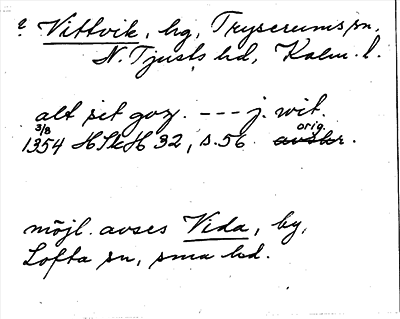 ? Vittvik, hg, Tryserums sn.
N. Tjusts hd, Kalm. l.
alt sit goz. --- j. wit.
3/8 orig.
1354 HSkH 32, s. 56. avskr.
möjl. avses Vida, by,
Lofta sn, sma hd.